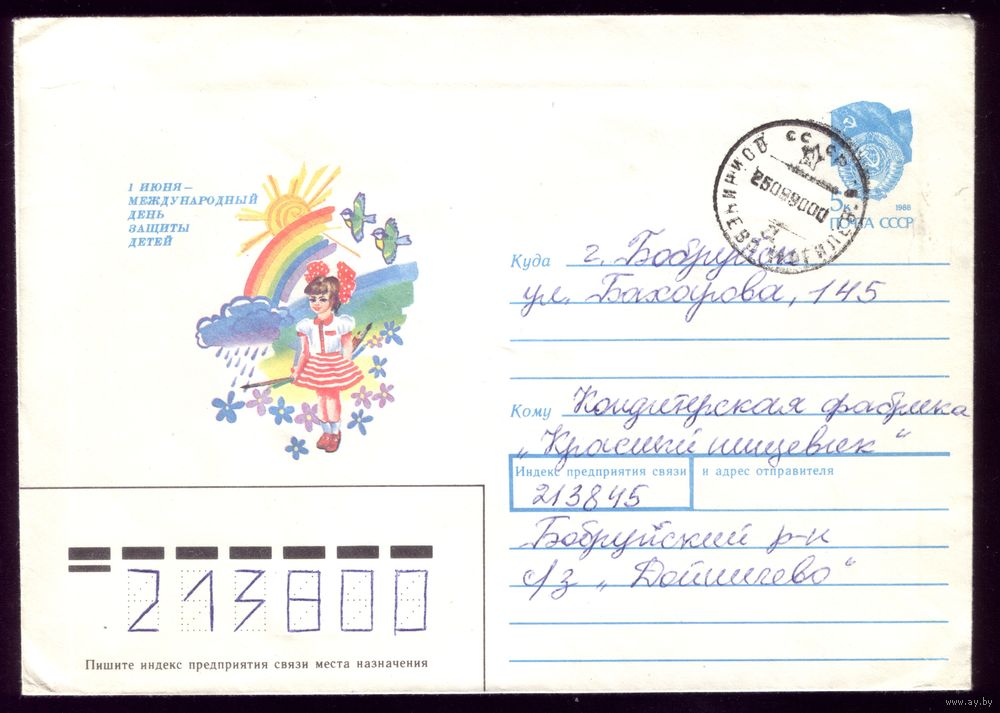 1 ИЮНЯ —
МЕЖДУНАРОДНЫЙ
ДЕНЬ
ЗАЩИТЫ
ДЕТЕЙ
СССР
5к
1988
ПОЧТА СССР
Куда г. Бобруйск
ул. Бахарова, 145
Кому Кондитерская фабрика
„Красный пищевик“
Индекс предприятия связи и адрес отправителя
213845
Бобруйский р-н
с/з „
213800
Пишите индекс предприятия связи места назначения
www.ay.by